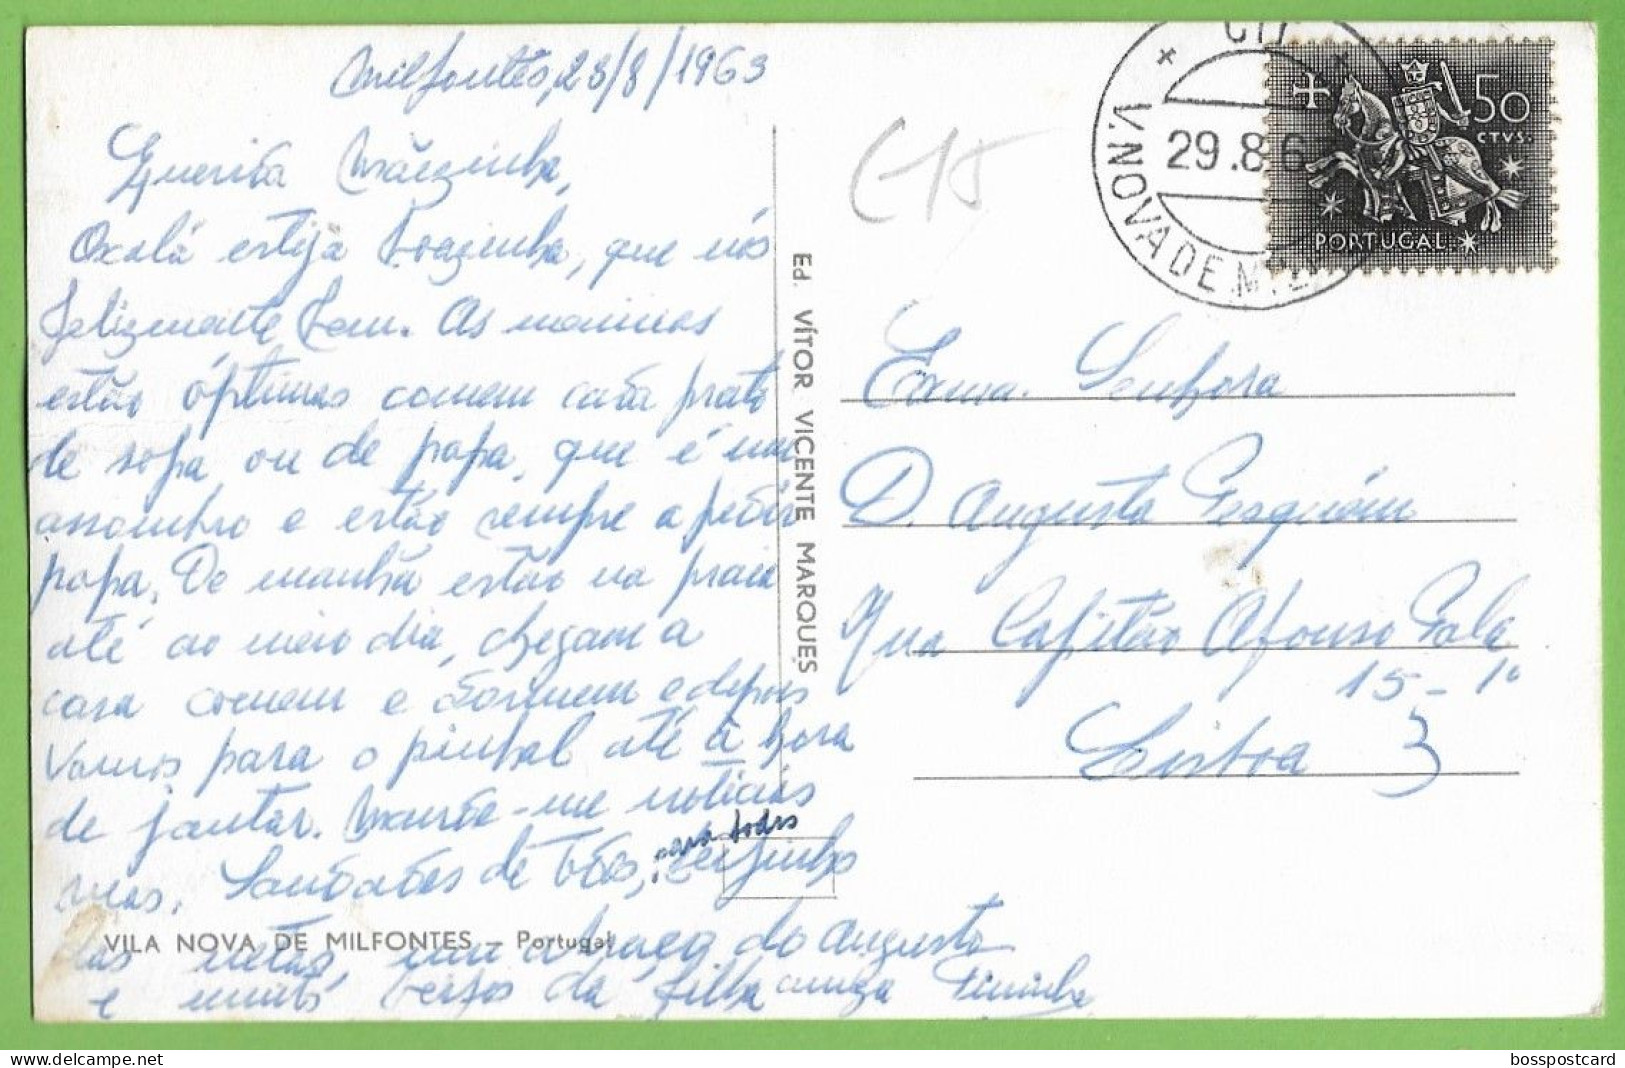 Milfontes, 28/8/1963
Querida Mãezinha,
Oxalá esteja boazinha, que nós
felizmente bem. As meninas
estão óptimas comem cada prato
de sopa ou de papa, que é um
assombro e estão sempre a pedir
papa. De manhã estão na praia
até ao meio dia, chegam a
casa comem e dormem e depois
vamos para o pinhal até à hora
de jantar. Mande-me notícias
suas. Saudades de todos, para todos beijinhos
das netas, um abraço do Augusto
e muitos beijos da filha amiga
VILA NOVA DE MILFONTES - Portugal
Ed. VÍTOR VICENTE MARQUES
€15
CTT
29.8.6
V. NOVA DE MIL
50
CTVS.
PORTUGAL
Exma. Senhora
D. Augusta
Rua Capitão Afonso Pala
15-1º
Lisboa 3
bosspostcard